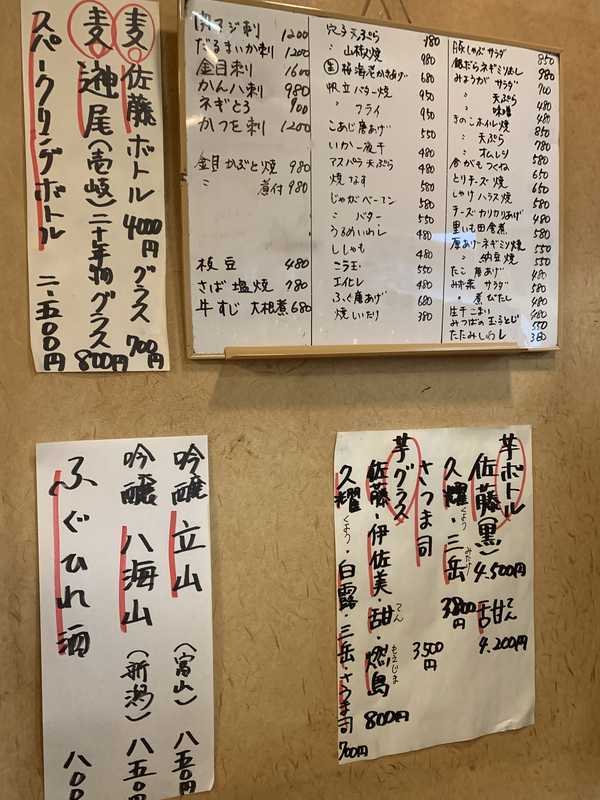 麦 佐藤ボトル 4000円 グラス 700円
麦 (壱岐)二十年物グラス 800円
スパークリングボトル 二、五〇〇円
関アジ刺 1200
だるまいか刺 1200
金目刺 1600
かん八刺 980
ネギとろ 900
かつを刺 1200
金目かぶと焼 980
〃 煮付 980
枝豆 480
さば塩焼 780
牛すじ大根煮 680
穴子天ぷら 980
〃 山椒焼 980
桜海老かきあげ 680
帆立バター焼 950
〃 フライ 950
こあじ唐あげ 550
いか一夜干 480
アスパラ天ぷら 480
焼なす 480
じゃがベーコン 580
〃 バター 550
うるめいわし 480
ししゃも 480
ニラ玉 550
エイヒレ 480
ふぐ唐あげ 680
焼いたり 380
豚しゃぶサラダ 850
銀だらネギミソむし 980
みょうがサラダ 700
〃 天ぷら 480
〃 味噌 480
きのこホイル焼 850
〃 天ぷら 780
〃 オムレツ 580
合がもつくね 650
とりチーズ焼 650
しゃけハラス焼 580
チーズカリカリあげ 480
里いも田舎煮 580
厚あげネギミソ焼 550
〃 納豆焼 580
たこ唐あげ 480
水菜サラダ 580
〃 煮びたし 580
生干こまい 480
みつばの玉子とじ 550
たたみいわし 380
吟醸 立山 (富山) 八五〇円
吟醸 八海山 (新潟) 八五〇円
ふぐひれ酒 八〇〇
芋ボトル
佐藤(黒) 4.500円 甜 てん 4.200円
久耀 くよう・三岳 みたけ 3800円
さつま司 3500円
芋グラス
佐藤・伊佐美・甜 てん・燃島 もえじま 800円
久耀 くよう・白露・三岳・さつま司 700円